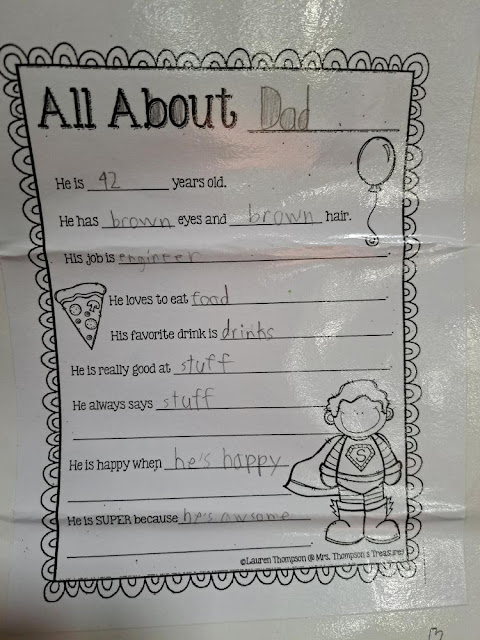 All About Dad
He is 42 years old.
He has brown eyes and brown hair.
His job is engineer.
He loves to eat food.
His favorite drink is drinks.
He is really good at stuff.
He always says stuff
He is happy when he's happy
He is SUPER because he's awsome
S
©Lauren Thompson (@ Mrs. Thompson's Treasures)